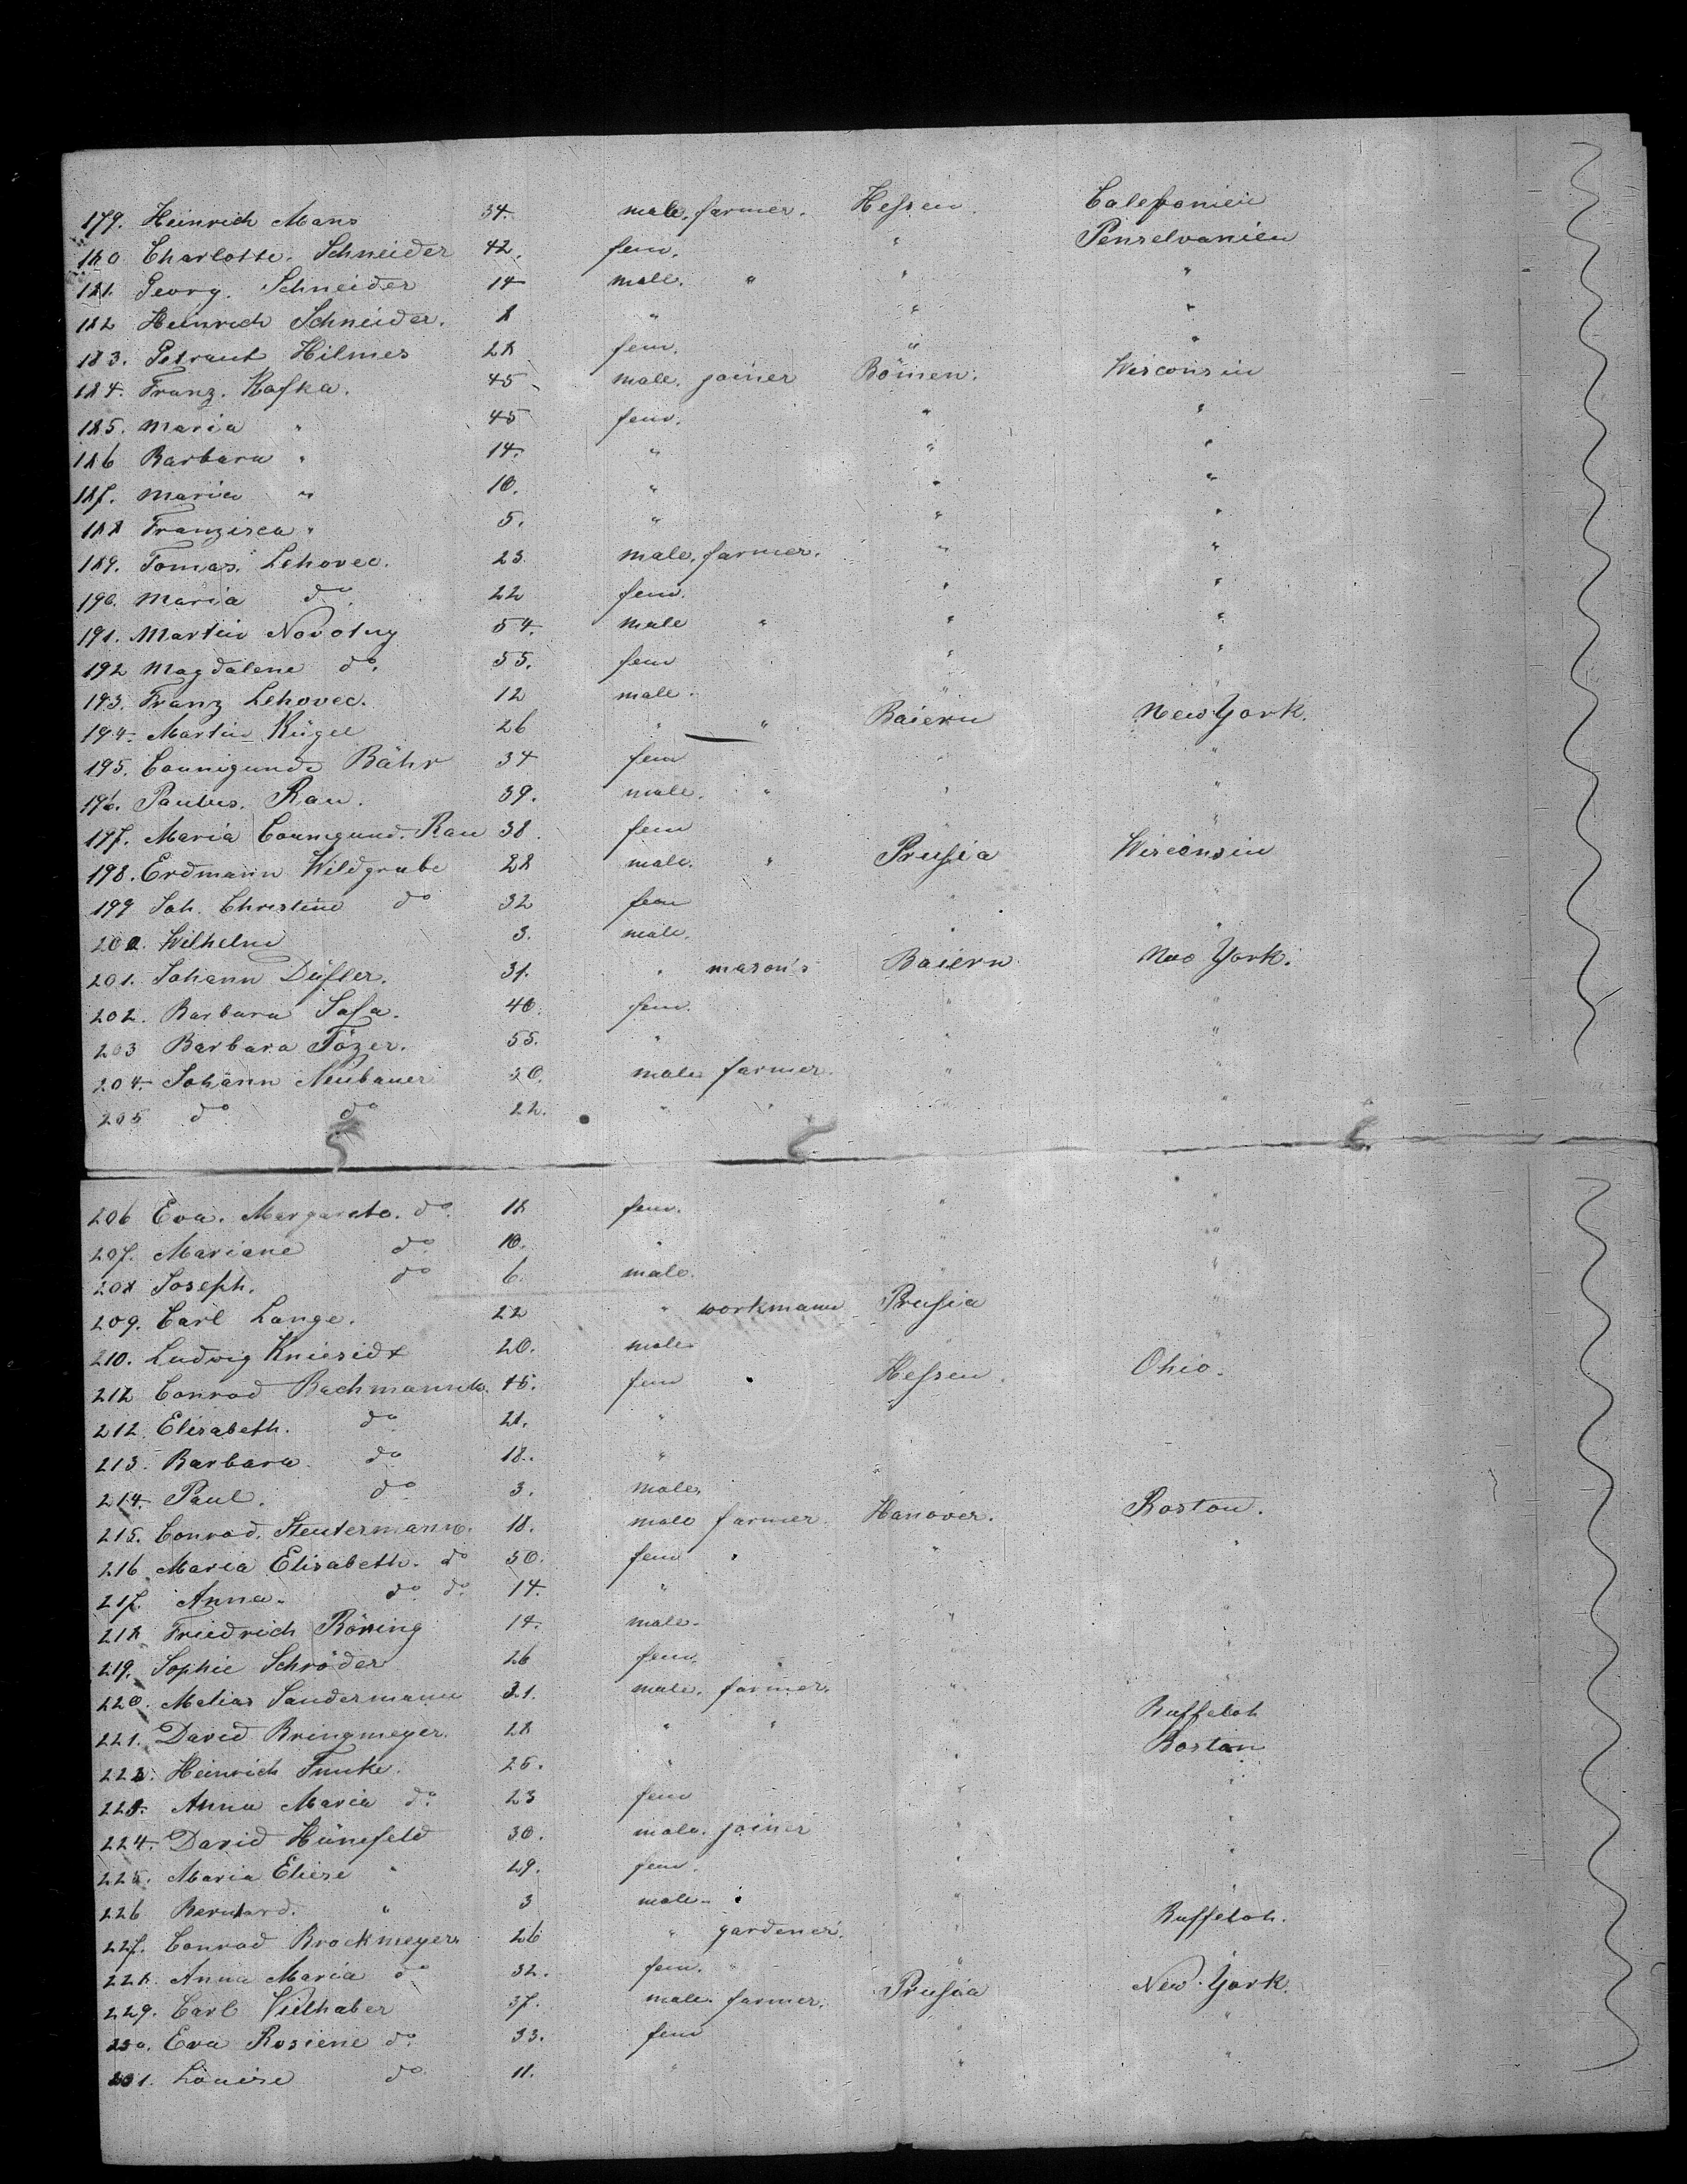 179. Heinrich Mans 34. male. farmer. Hessen. Calefonien
180 Charlotte. Schneider 42. fem. " Penselvanien
181. Georg. Schneider 14 male. " " "
182 Heinrich Schneider. 8 " " "
183. Getraut Hilmes 28 fem. " "
184. Franz. Kafka. 45 male. joiner Bömen. Wisconsin
185. Maria " 45 fem. " "
186 Barbara " 14. " " "
187. Maria " 10. " " "
188 Franzisca " 5. " " "
189. Tomas. Lehovec. 23. male. farmer. " "
190. Maria do. 22 fem. " "
191. Martin Novotny 54. male " " "
192 Magdalene do. 55. fem " "
193. Franz Lehovec. 12 male. " "
194. Martin Kügel 26 " " Baiern New York.
195. Counigunde Bähr 34 fem " "
196. Paulus. Rau. 39. male. " " "
197. Maria Counigund. Rau 38. fem " "
198. Erdmann Wildgrube 28 male. " Prusia Wisconsin
199 Joh. Christine do 32 fem " "
200. Wilhelm 3. male. " "
201. Johann 31. " mason's Baiern New York.
202. Barbara 40. fem. " "
203 Barbara Tözer. 55. " " "
204. Johann Neubauer 50. male farmer. " "
205 do do 22. " " " "
206 Eva. Margareta. do. 18 fem. " "
207. Mariane do 10. " " "
208 Joseph. do 6. male. " "
209. Carl Lange. 22 " workmann Prusia "
210. Ludwig Kniesidt 20. male " "
212 Conrad Bachmann 15. fem " Hessen. Ohio.
212. Elisabeth. do 21. "
213. Barbara. do 18. "
214. Paul. do 3. male.
215. Conrad. Steutermann. 18. male farmer. Hanover. Boston.
216. Maria Elisabeth. do 50. fem " " "
217. Anna. do do. 14. "
218 Friedrich Röning 14. male. " "
219. Sophie Schröder 26 fem. " "
220. Melias Sandermann 21. male. farmer. " "
221. David Bringmeyer. 28 " " " Buffeloh
222. Heinrich Funke. 25. " " Boston
223. Anna Maria do. 23 fem " "
224. David Hünefeld 30. male. joiner " "
225. Maria Eliese " 29. fem. " "
226 Bernhard. " 3 male. " "
227. Conrad Brockmeyer. 26 " gardener. " Buffeloh.
228. Anna Maria do 32. fem. " " "
229. Carl Vielhaber 37. male. farmer. Prusia New York.
230. Eva Rosiene do. 33. fem " "
231. Louise do. 11. " " "